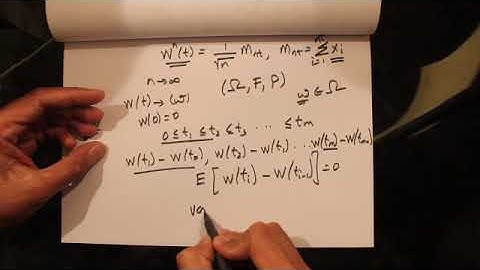 Wⁿ(t) = 1/√n Mnt, Mnt = Σ i=1 nt Xi
n→∞ (Ω, F, P)
W(t) → (ω) ω ∈ Ω
W(0) = 0
0 ≤ t₁ ≤ t₂ ≤ t₃ ... ≤ tm
W(t₁) - W(t₀), W(t₂) - W(t₁) ... W(tm) - W(tm-1)
E [W(ti) - W(ti-1)] = 0
va